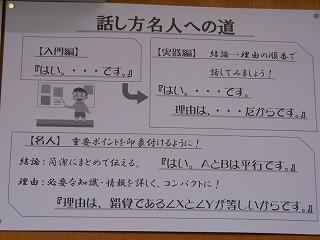 話し方名人への道
【入門編】
『はい。・・・です。』
【実践編】 結論→理由の順番で
話してみましょう！
『はい。・・・です。
理由は、・・・だからです。』
【名人】 重要ポイントを印象付けるように！
結論：簡潔にまとめて伝える。 『はい。AとBは平行です。』
理由：必要な知識・情報を詳しく、コンパクトに！
『理由は、錯覚である∠Xと∠Yが等しいからです。』